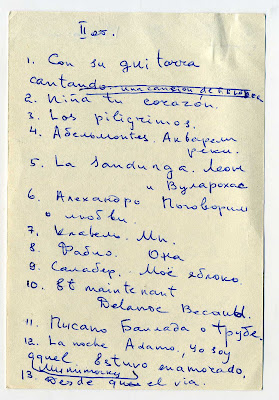 II от.
1. Con su guitarra
cantando una cancion de
2. Niña tu corazón.
3. Los piligrimos.
4. Абеломонтес. Акварель
реки.
5. La Sandunga. Леон
и Вуларохас
6. Алехандро Поговорим
о любви.
7. Клавель. Мы.
8. Фабио. Она
9. Салабер. Моё яблоко.
10. Et maintenant
Delanoe Becauld.
11. Писано Баллада о трубе.
12. La noche Adamo, Yo soy
aquel. Estuvo enamorado.
13. Desde que el via.